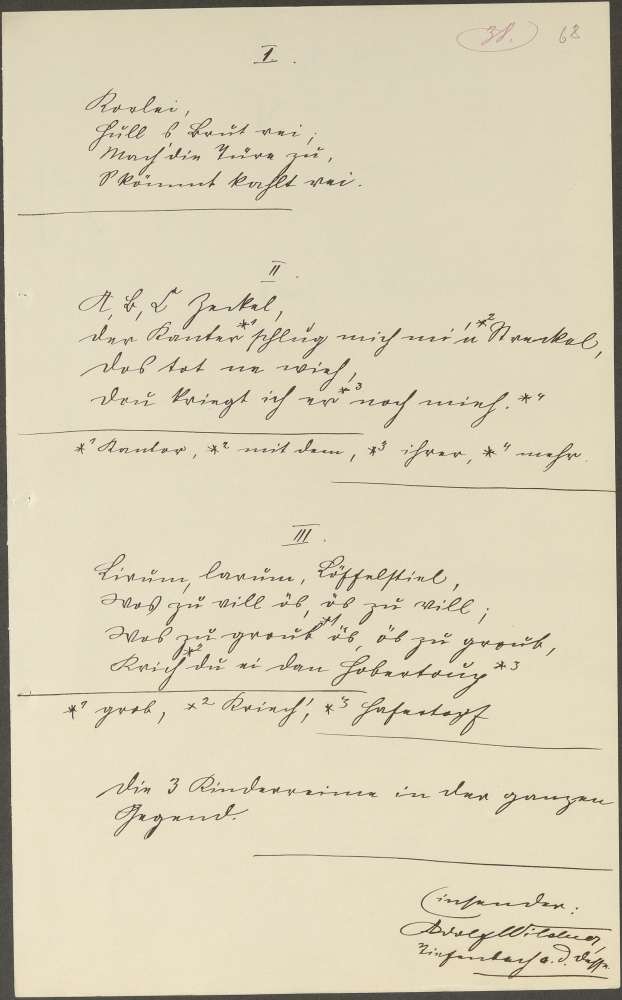 38. 68
I.
Korlei,
Hull s Brut rei;
Mach' die Türe zu,
S kömmt kahlt rei.
II.
A, B, C Zeckel,
der Kanter *1 schlug mich mi'n *2 Steckel,
dos tot ne wieh,
dou kriegt ich er *3 noch mieh. *4
*1 Kantor, *2 mit dem, *3 ihrer, *4 mehr.
III.
Lirum, larum, Löffelstiel,
Wos zu vill ös, ös zu vill;
Wos zu groub *1 ös, ös zu groub,
Krich *2 du ei dan Hobertoup *3
*1 grob, *2 Kriech', *3 Hafertopf
Die 3 Kinderreime in der ganzen
Gegend.
Einsender:
Adolf Wildner,
Tiefenbach a. d. Desse.